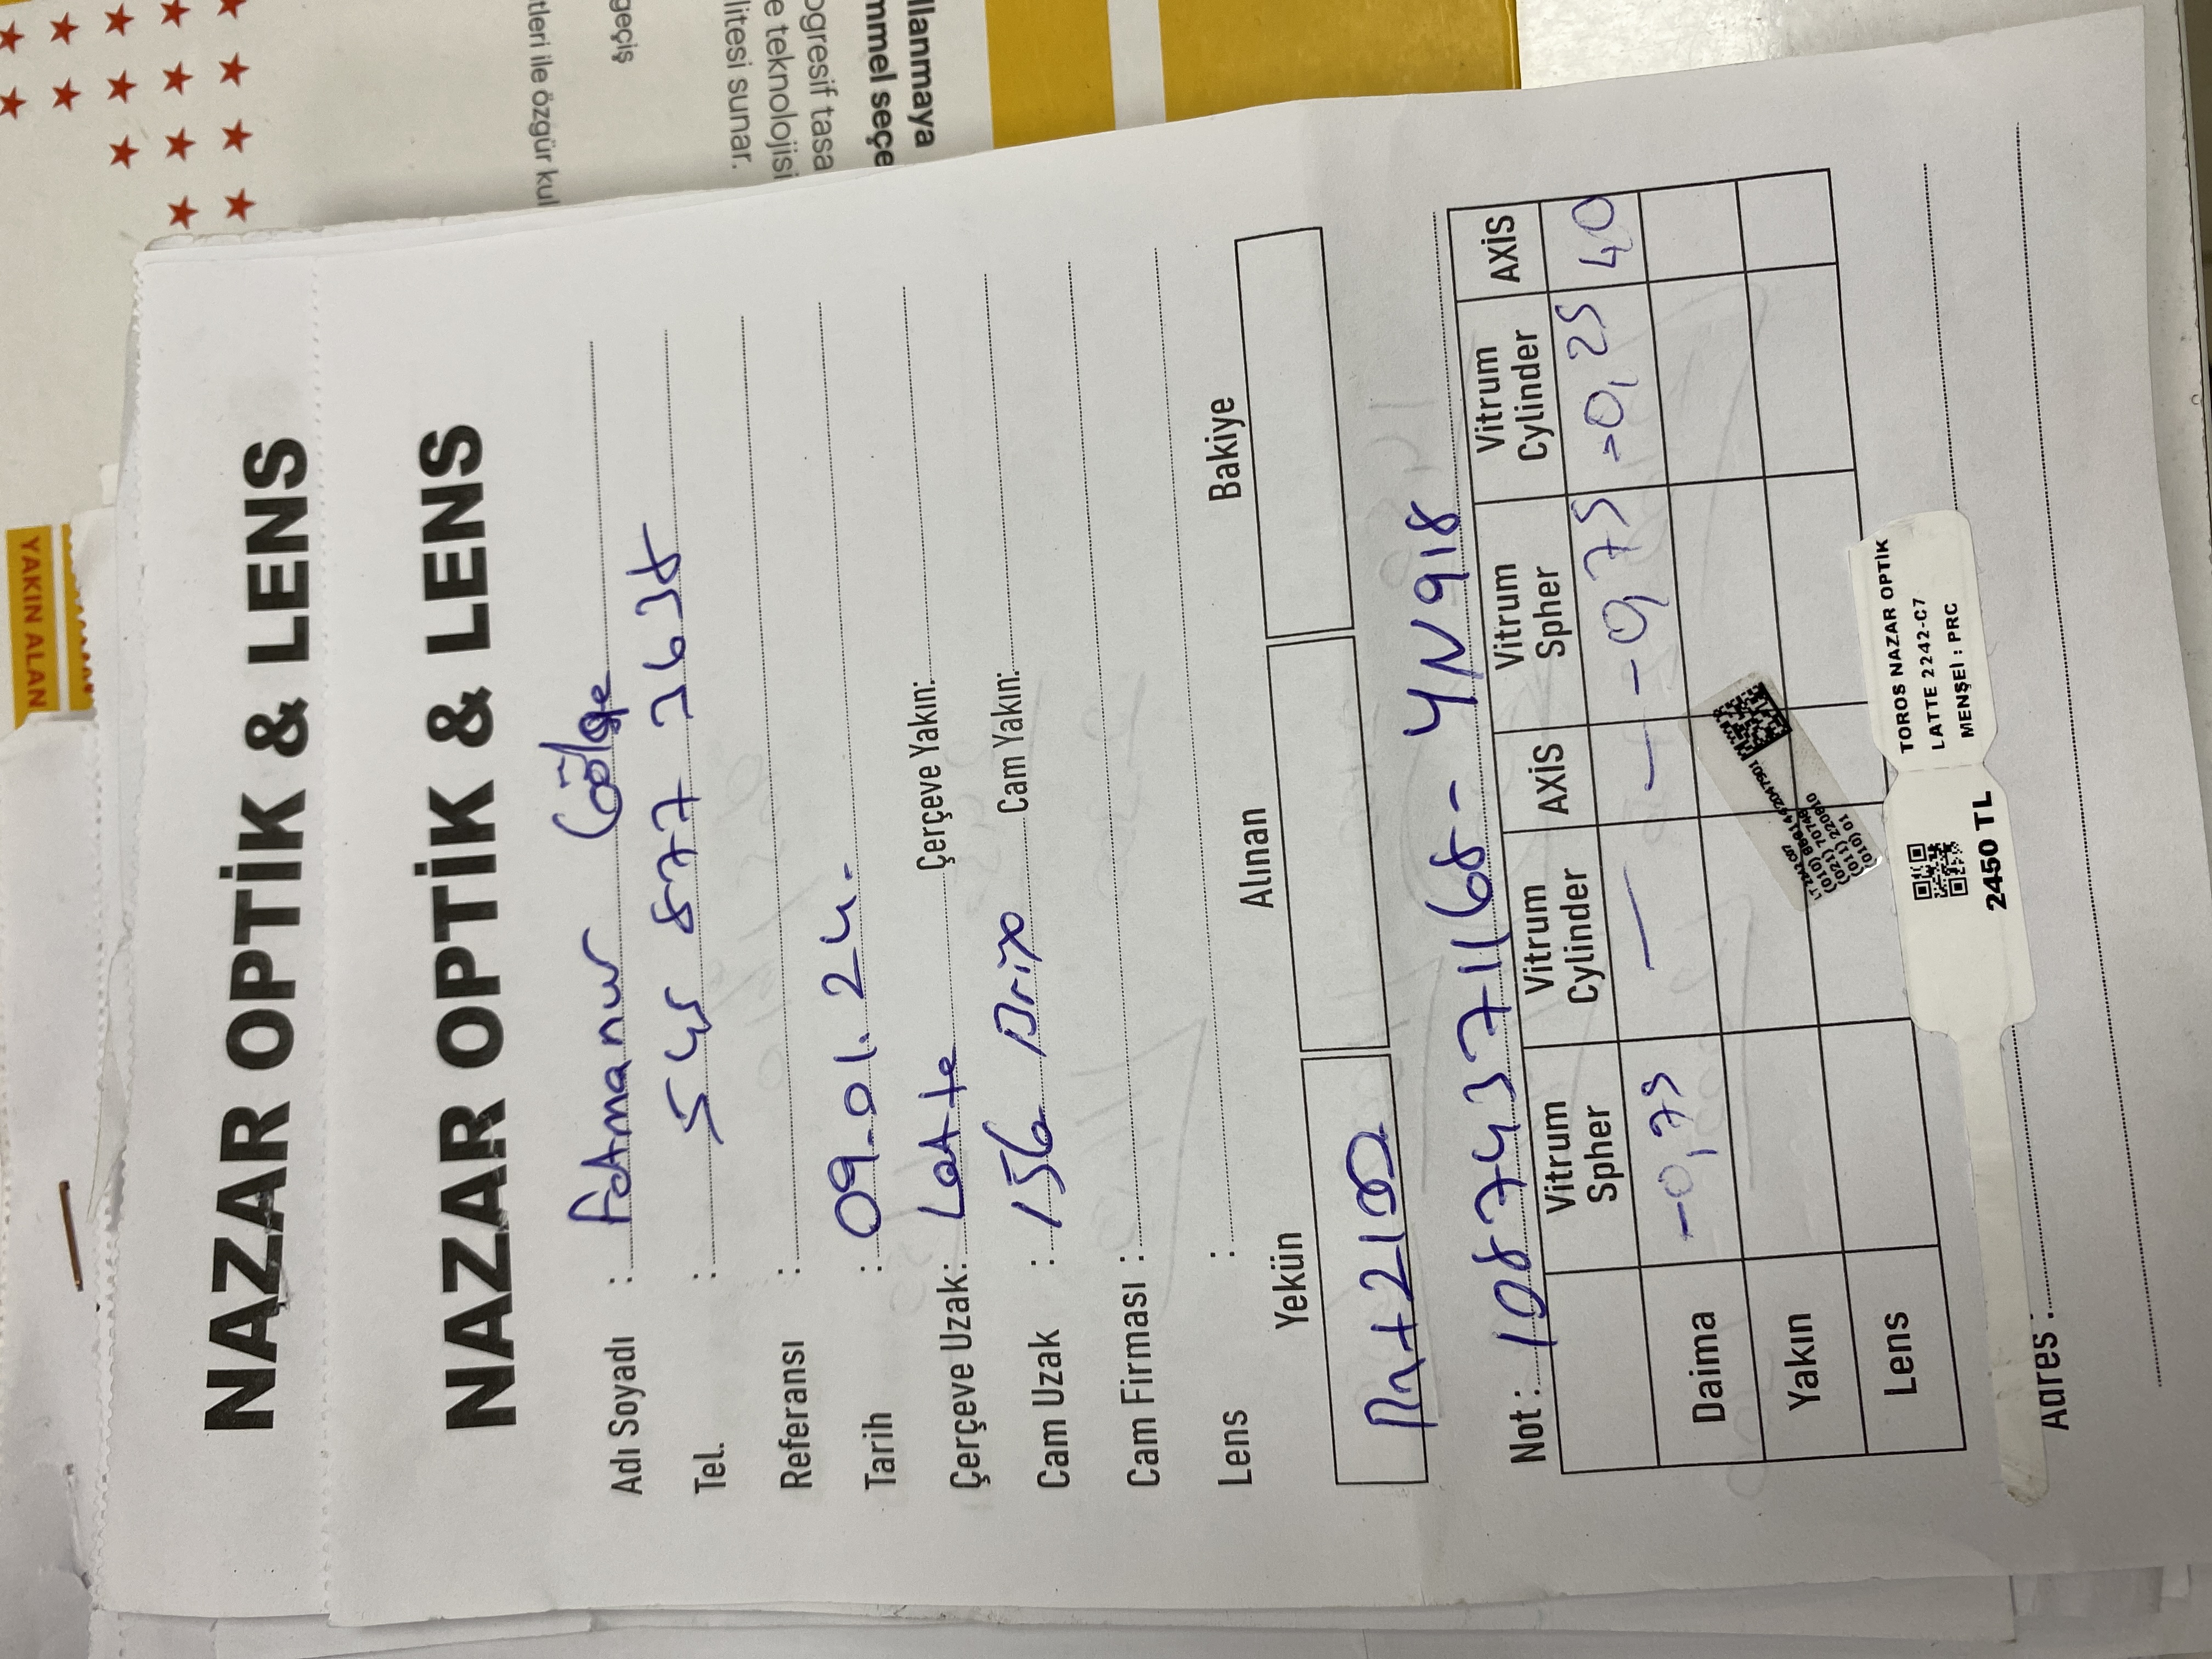 YAKIN ALAN
NAZAR OPTİK & LENS
NAZAR OPTİK & LENS
Adı Soyadı : Fatmanur Gölge
Tel. : 545 877 3638
Referansı :
Tarih : 09.01.24.
Çerçeve Uzak: Latte Çerçeve Yakın:
Cam Uzak : 156 Cam Yakın:
Cam Firması :
Lens :
Yekün Alınan Bakiye
+2100
Not : 10874371168- YN918
Vitrum Spher Vitrum Cylinder AXİS Vitrum Spher Vitrum Cylinder AXİS
Daima -0,75 — — -0,75 -0,25 40
Yakın
Lens
LT 2242 C07
(010) 8681442047901
(021) 70748
(011) 220810
(010) 01
2450 TL
TOROS NAZAR OPTİK
LATTE 2242-C7
MENŞEİ : PRC
Adres :
tleri ile özgür kul
geçiş
litesi sunar.
e teknolojisi
ogresif tasa
mmel seçe
llanmaya